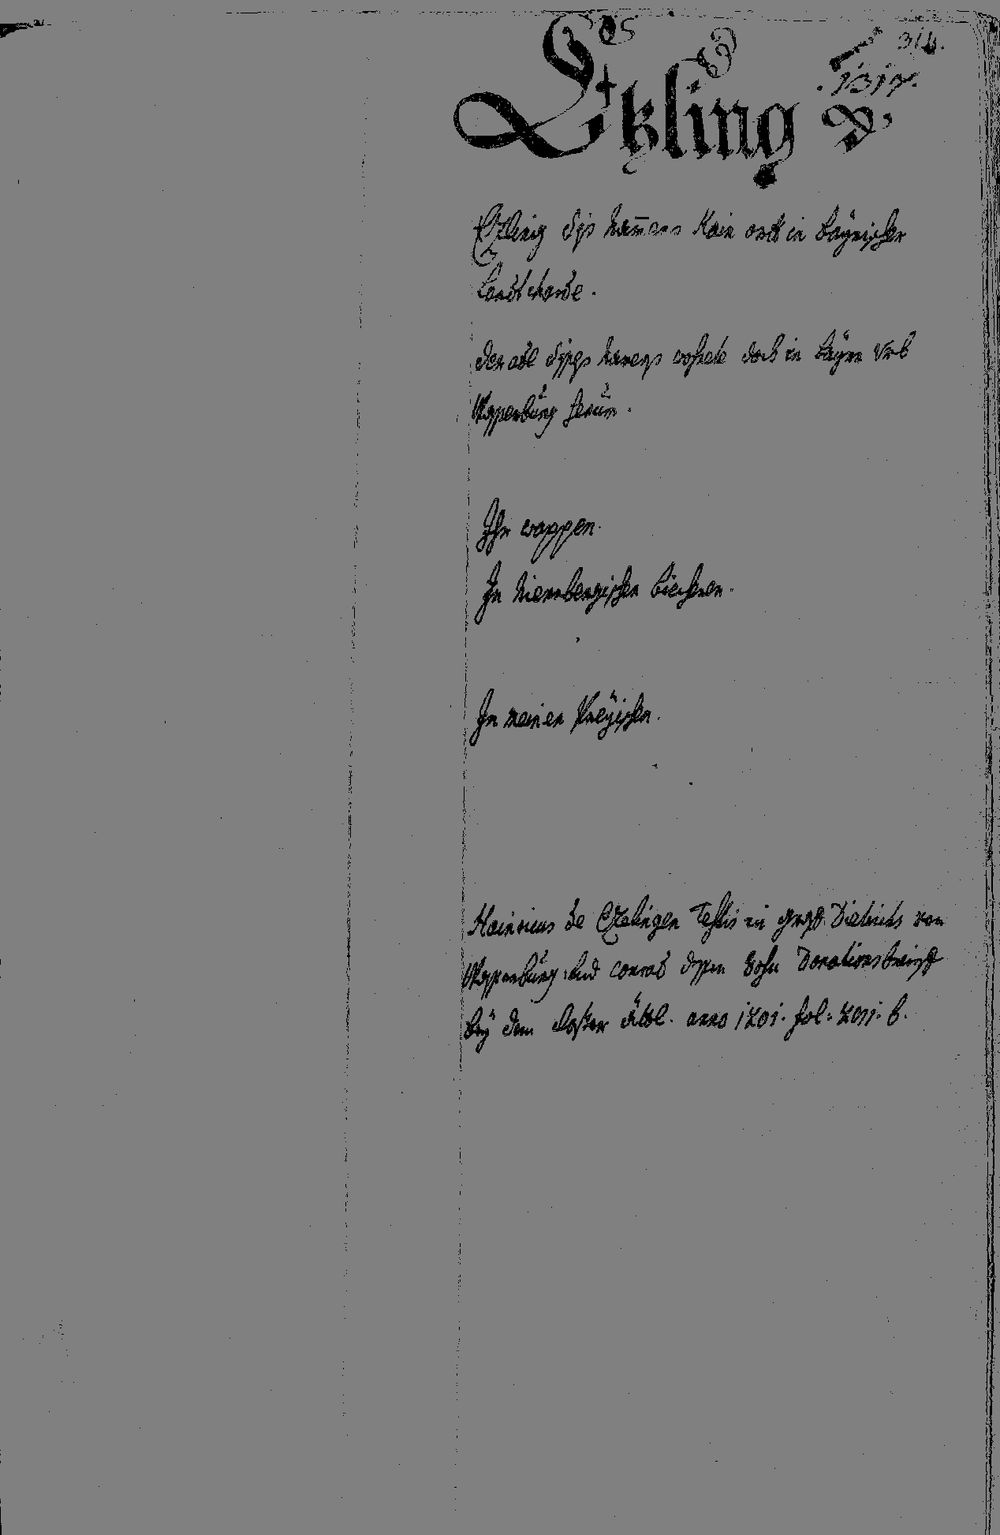 314.
Etzling
1317.
Etzling diss namens kain ortt in Bayrischer
Landtcharte.
Der adl dises namens wohnete doch in Bayrn Umb
Wasserburg herum.
Ihr wappen.
In Niernbergischen biechern.
In meiner Preyischen.
Hainricus de Ezelingen Testis in Dietrichs von
Wasserburg und Conrad dessen Sohn Donationsbrieff
bey dem closter Ättl. anno 1201. fol: b.